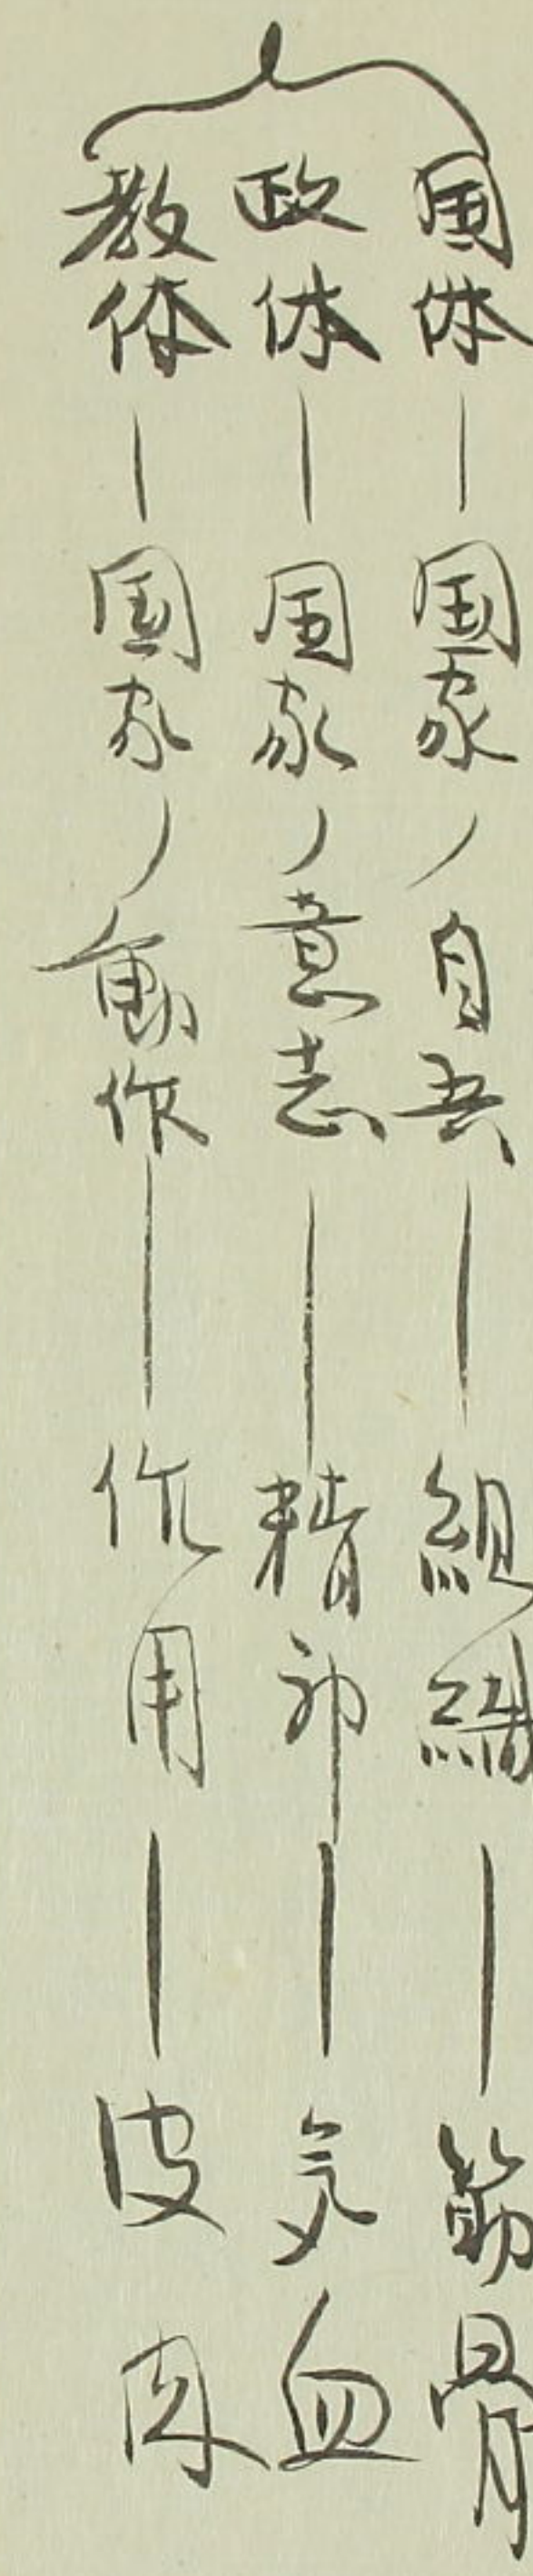 国体―国家ノ自吾―組織―筋骨
政体―国家ノ意志―精神―気血
教体―国家ノ動作―作用―皮肉